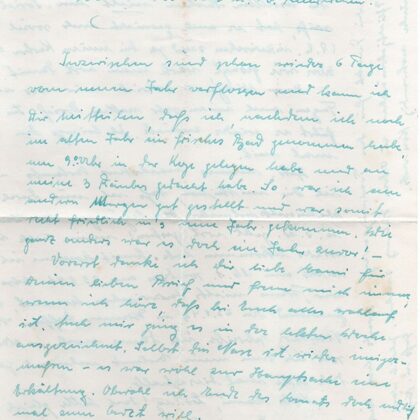 Inzwischen sind schon wieder 6 Tage
vom neuen Jahr verflossen und kann ich
Dir mitteilen, daß ich, nachdem ich noch
im alten Jahr ein frisches Bad genommen habe,
um 9 Uhr in der Koje gelegen habe und an
meine 3 gedacht habe. So war ich am
andern Morgen gut gestellt und war somit
recht friedlich in's neue Jahr gekommen. Wie
ganz anders war es doch ein Jahr zuvor! –
Vorerst danke ich Dir liebe für
Deinen lieben Brief und freue mich immer
wenn ich höre, daß bei Euch alles wohlauf
ist. Auch mir ging es in der letzten Woche
ausgezeichnet. Selbst die Nase ist wieder
– es war wohl zur Hauptsache eine
Erkältung. Obwohl ich Ende des Monats doch
mal zum Arzt will.